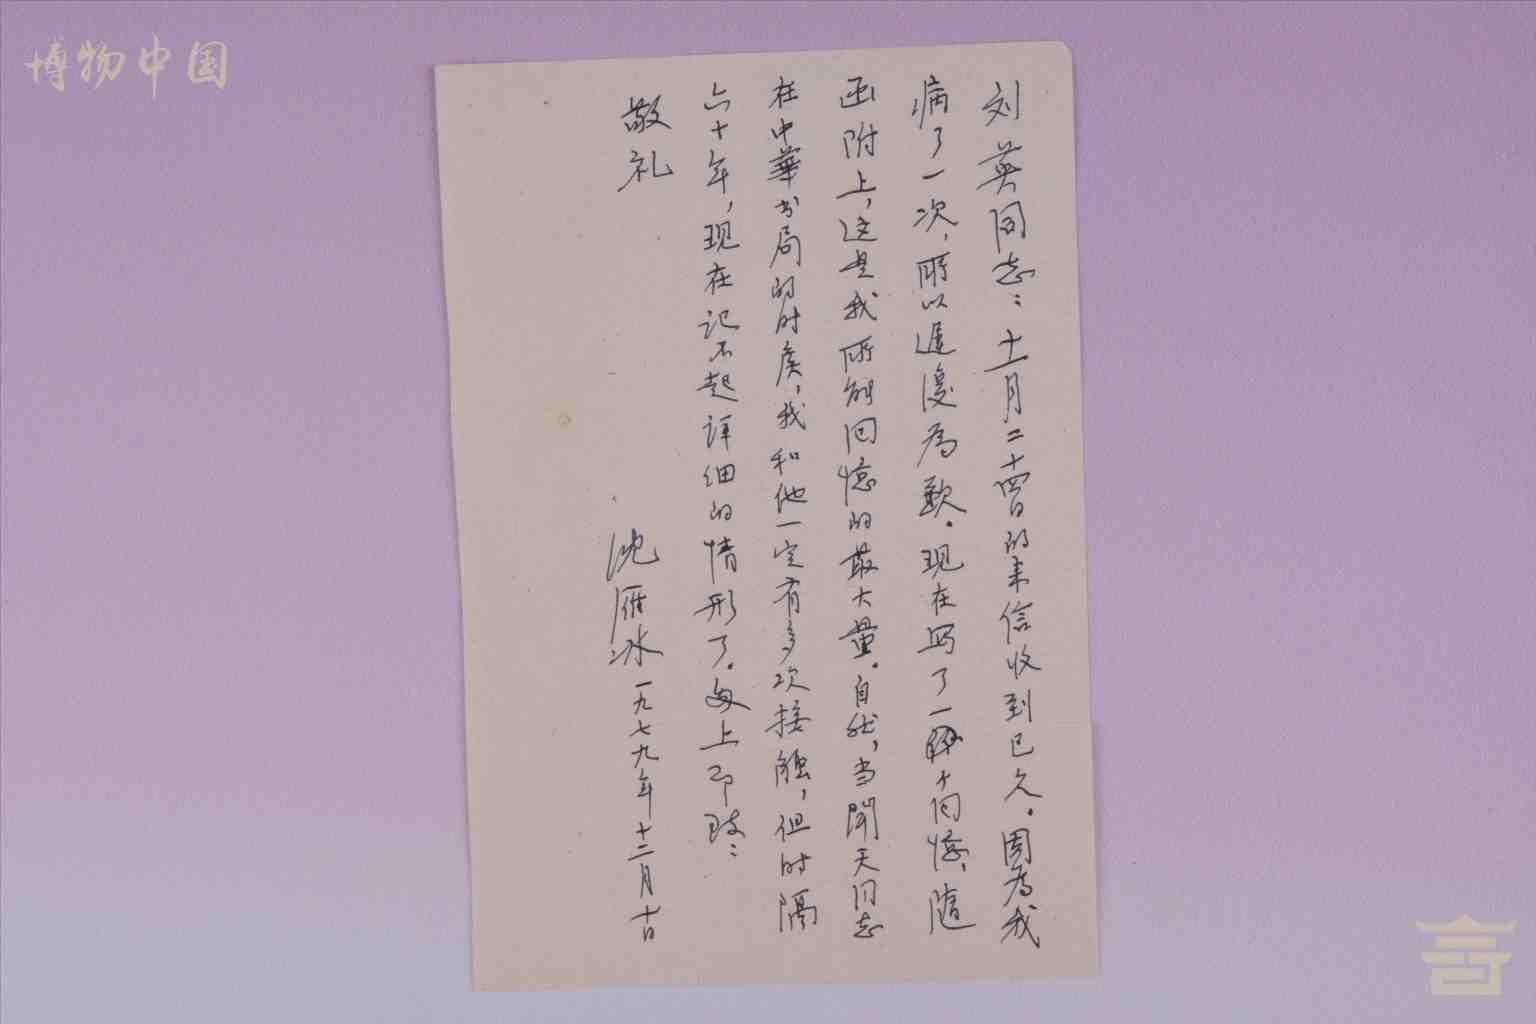 博物中国
刘英同志：十一月二十四日的来信收到已久。因为我
病了一次，所以迟复为歉。现在写了一个小回忆，随
函附上，这是我所能回忆的最大量。自然，当闻天同志
在中華书局的时候，我和他一定有多次接触，但时隔
六十年，现在记不起详细的情形了。匆上即致：
敬礼
沈雁冰 一九七九年十二月十日